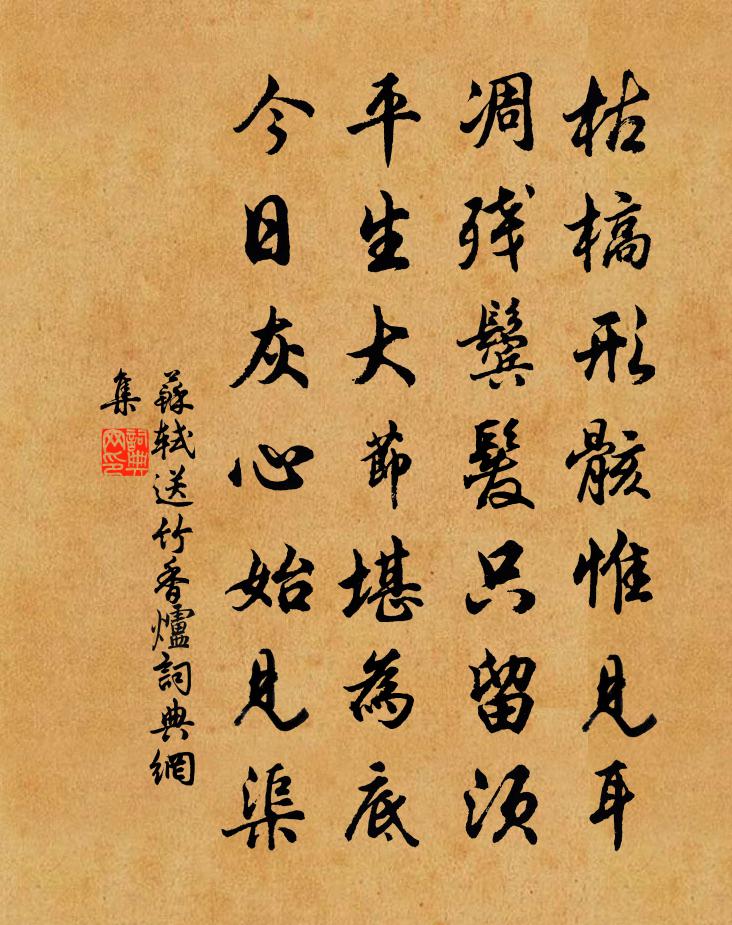 枯槁形骸惟見耳
凋殘鬢髮只留須
平生大節堪為底
今日灰心始見渠
蘇軾送竹香爐詞典網
集
詞典網印